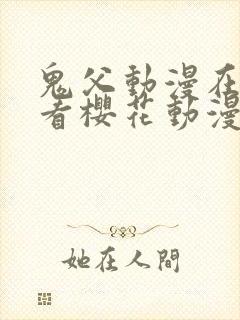 鬼父動漫在
看櫻花動漫
她在人間